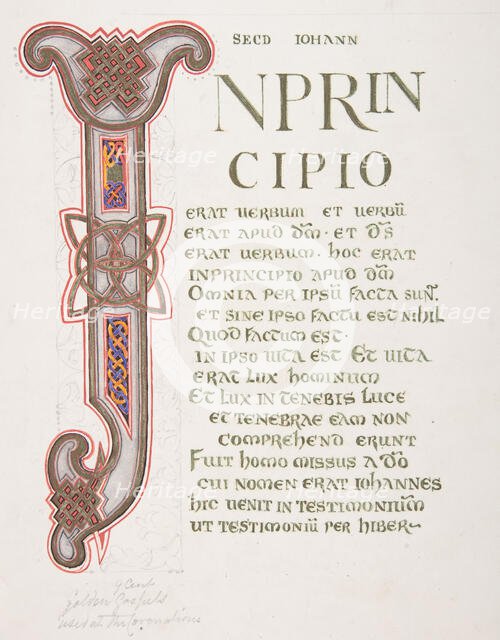 SECD IOHANN
INPRIN
CIPIO
ERAT UERBUM ET UERBŪ
ERAT APUD DM̄ · ET D̄S
ERAT UERBUM · HOC ERAT
INPRINCIPIO APUD DM̄
OMNIA PER IPSŪ FACTA SUNT.
ET SINE IPSO FACTŪ EST NIHIL
QUOD FACTUM EST ·
IN IPSO UITA EST · ET UITA
ERAT LUX HOMINUM
ET LUX IN TENEBIS LUCE
ET TENEBRAE EAM NON
COMPREHEND ERUNT
FUIT HOMO MISSUS A DŌ
CUI NOMEN ERAT IOHANNES
HIC UENIT IN TESTIMONIUM
UT TESTIMONIŪ PER HIBER
9 Cent
golden Gospels
used at the Coronations